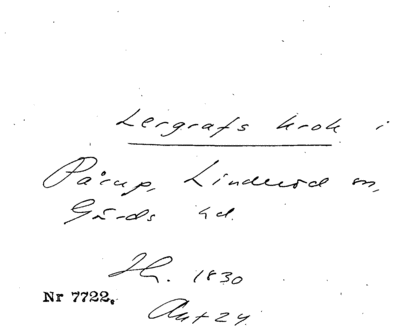 Lergrafs krok i
Pårup, Linderöd sn,
Gärds hd.
Jh. 1830
Nr 7722.
Ant 24